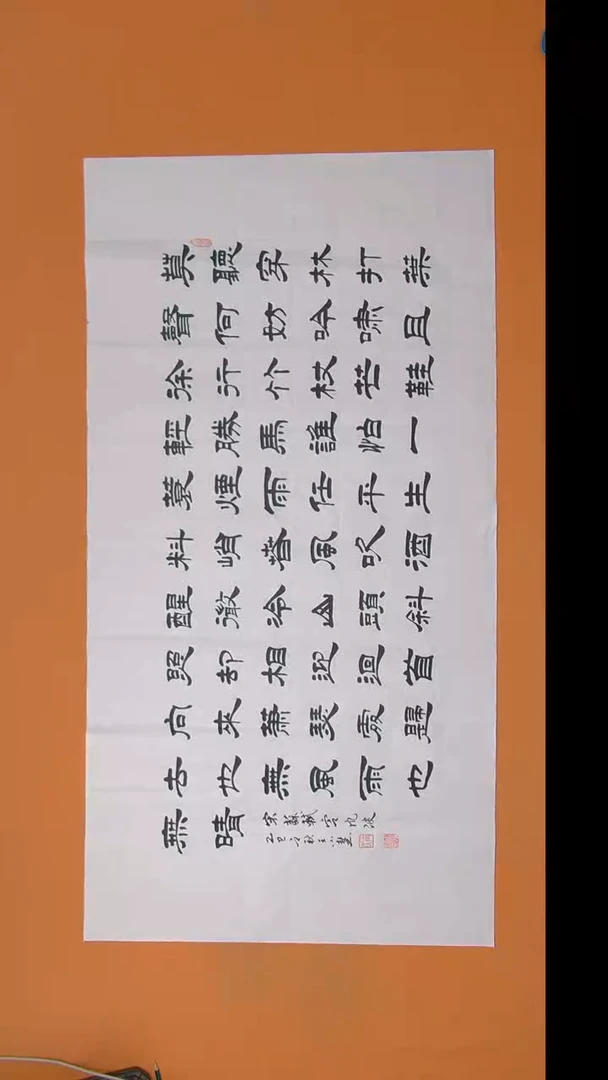 莫聽穿林打葉
聲何妨吟嘯且
徐行竹杖芒鞋
輕勝馬誰怕一
蓑煙雨任平生
料峭春風吹酒
醒微冷山頭斜
照却相迎迴首
向來蕭瑟處歸
去也無風雨也
無晴
宋蘇軾定風波
乙巳秋